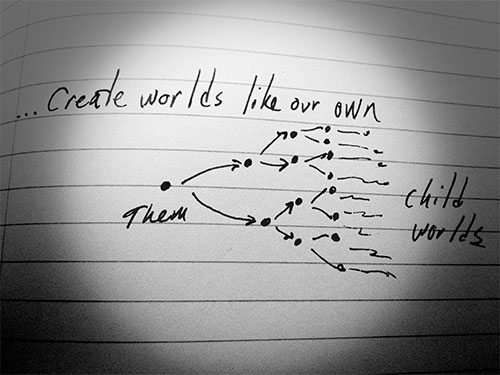 ... Create worlds like our own
Them
child
worlds